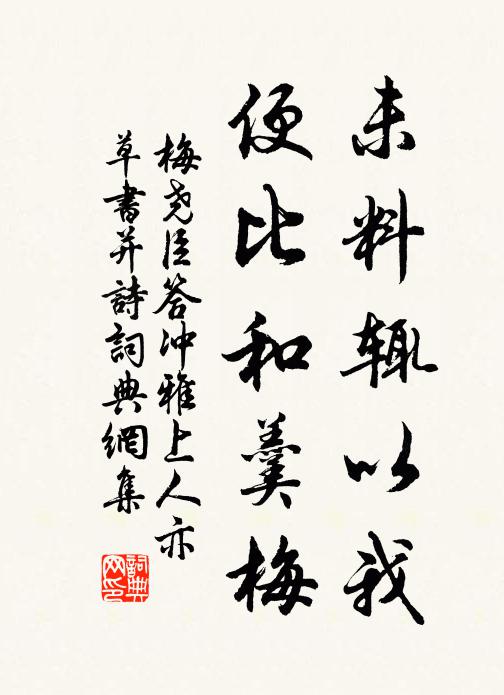 未料辄以我
便比和羹梅
梅尧臣答冲雅上人亦
草書并詩詞典網集
詞典网印